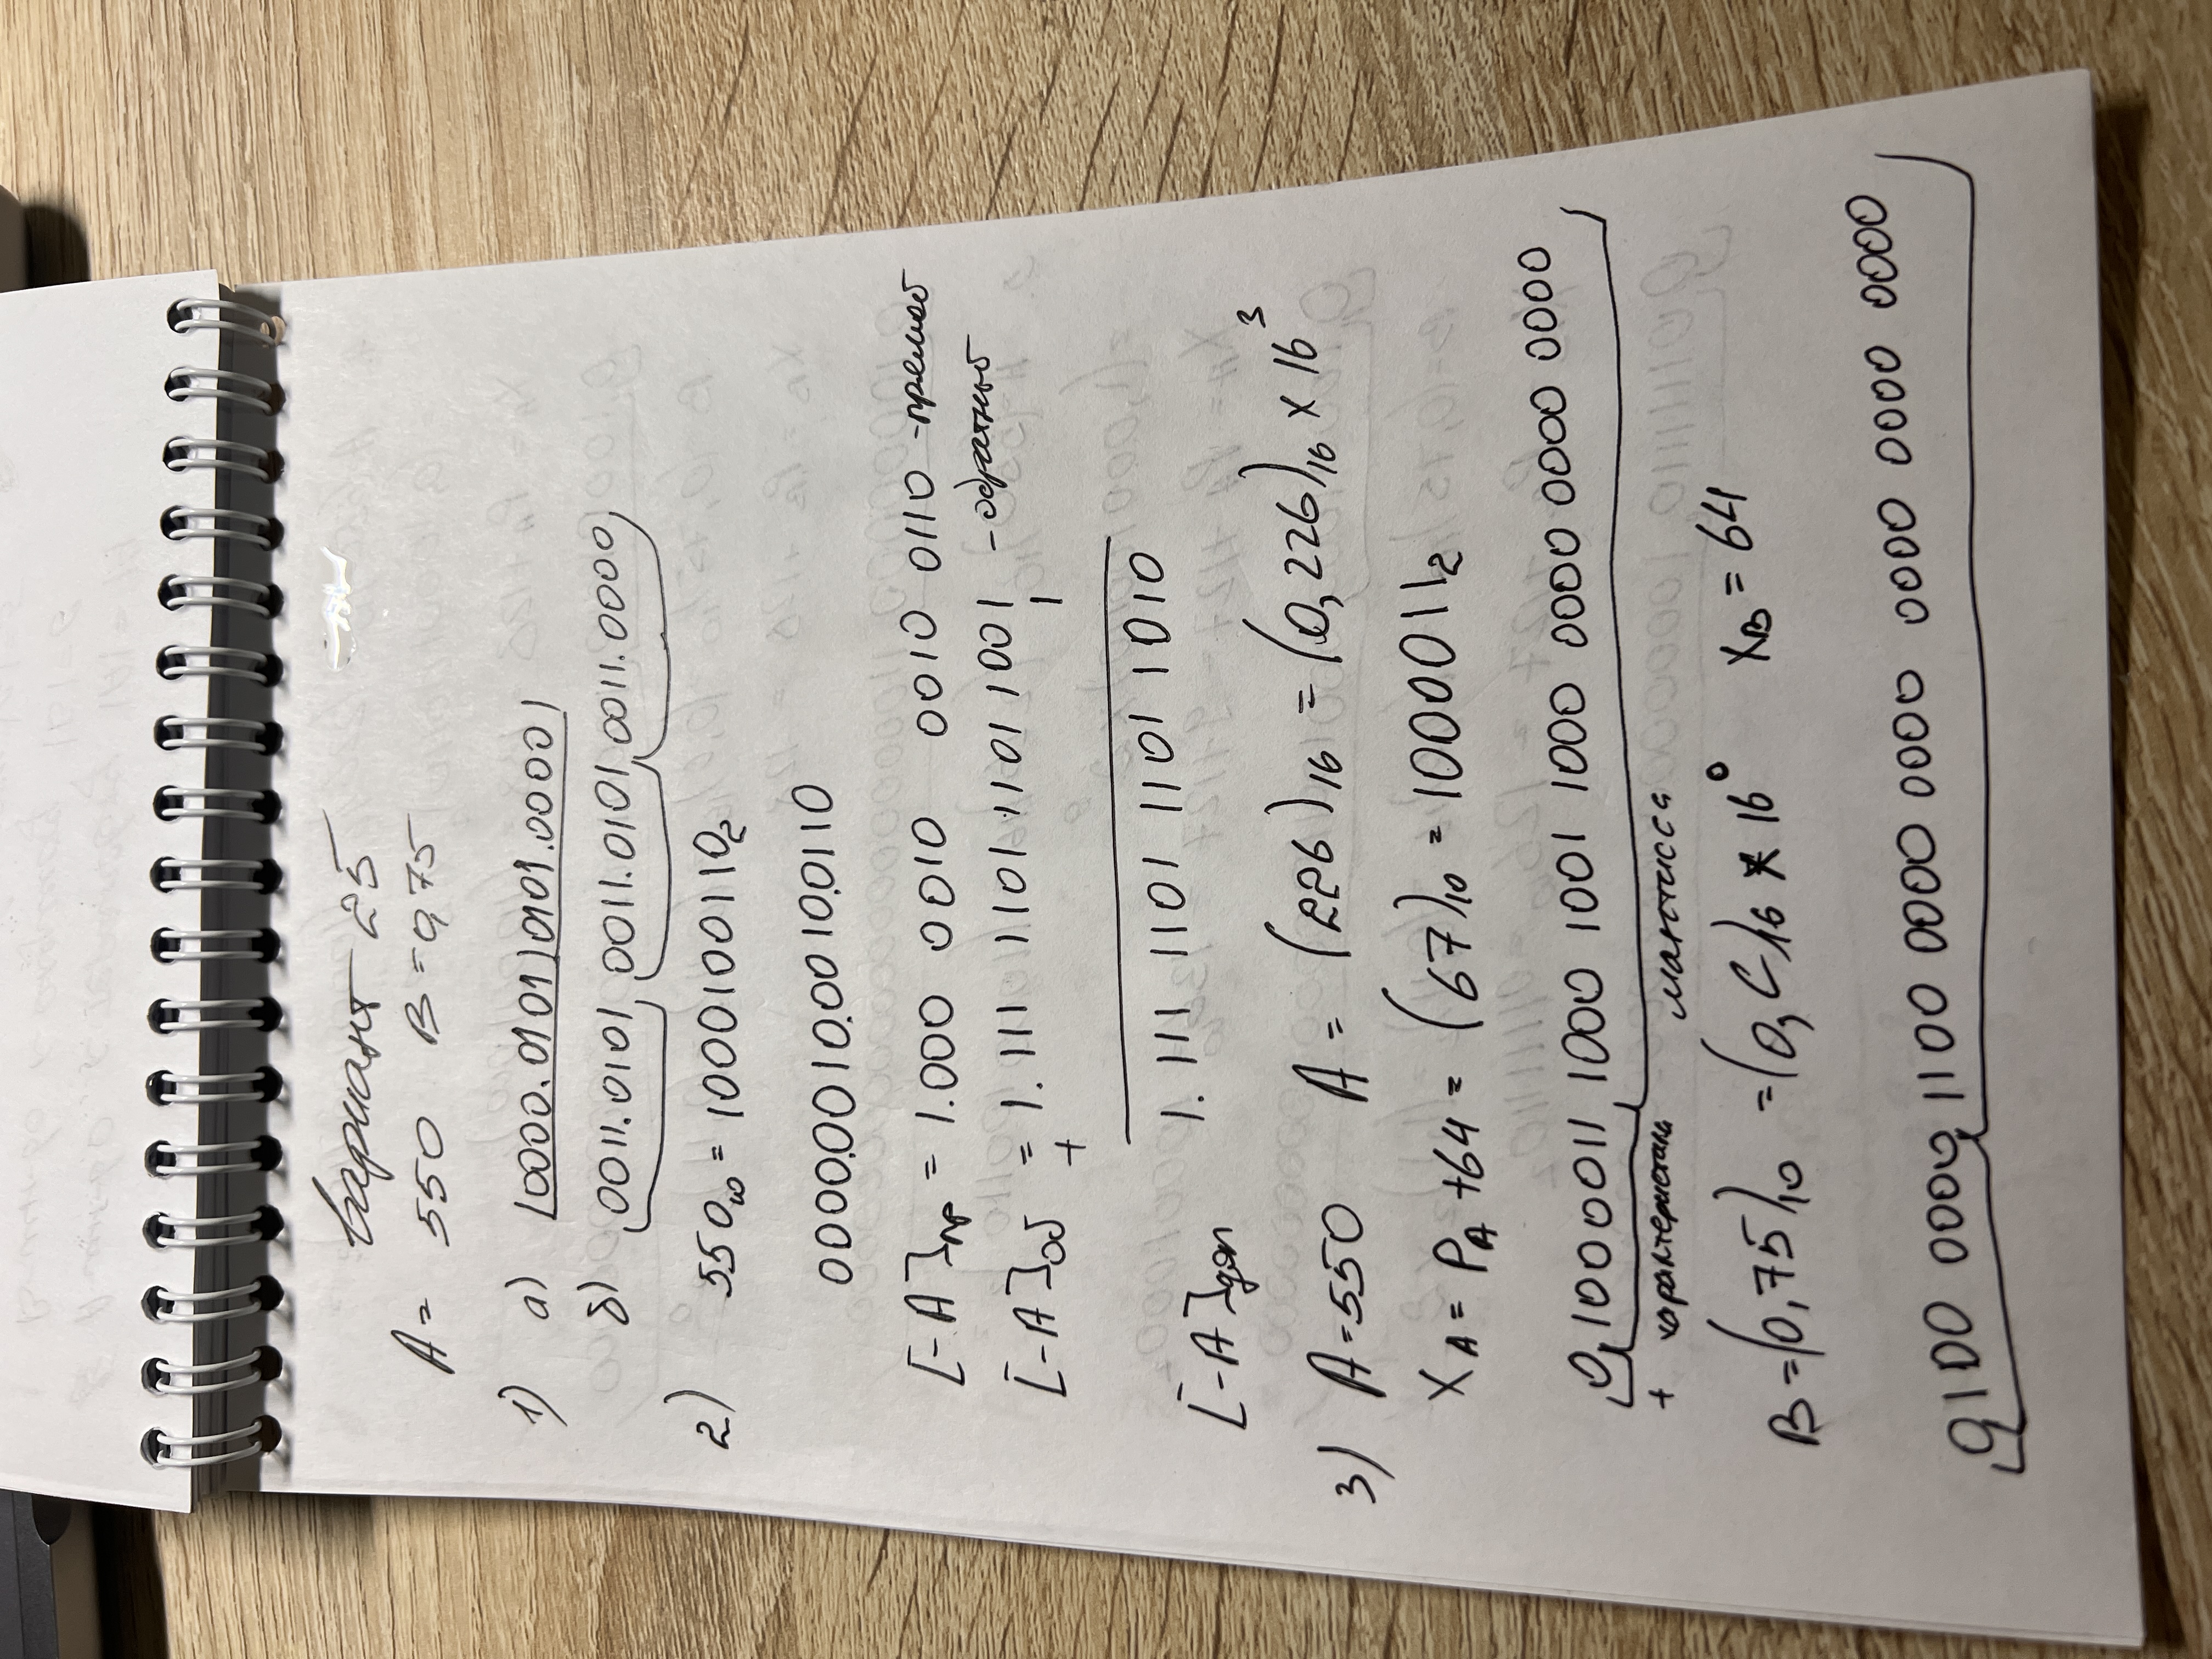 вариант 25
A = 550 B = 0,75
1) а) 10000.0101 | 0101.0000 |
б) 0011.0101 0011.0101 0011.0000
2) 550₁₀ = 1000100110₂
0000.0010.0010.0110
[-A]пр = 1.000 0010 0010 0110 - прямой
[-A]об = 1.111 1101 1101 1001 - обратный
+ 1
1.111 1101 1101 1010
[-A]доп
3) A = 550 A = (226)₁₆ = (0,226)₁₆ × 16³
XA = PA + 64 = (67)₁₀ = 1000011₂
0 1000011 1000 1001 1000 0000 0000 0000
+ характеристика мантисса
B = (0,75)₁₀ = (0,C)₁₆ * 16⁰ XB = 64
0100 0000 1100 0000 0000 0000 0000 0000